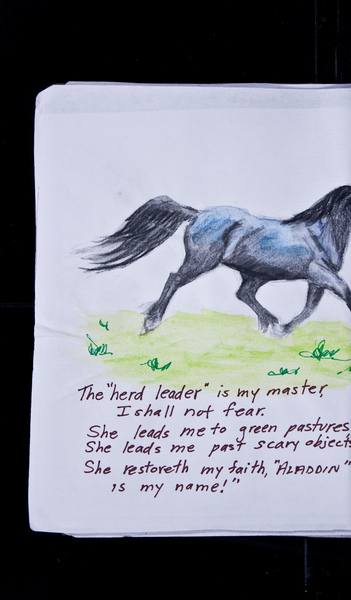 The "herd leader" is my master,
I shall not fear.
She leads me to green pastures
She leads me past scary objects
She restoreth my faith, "ALADDIN"
is my name!"